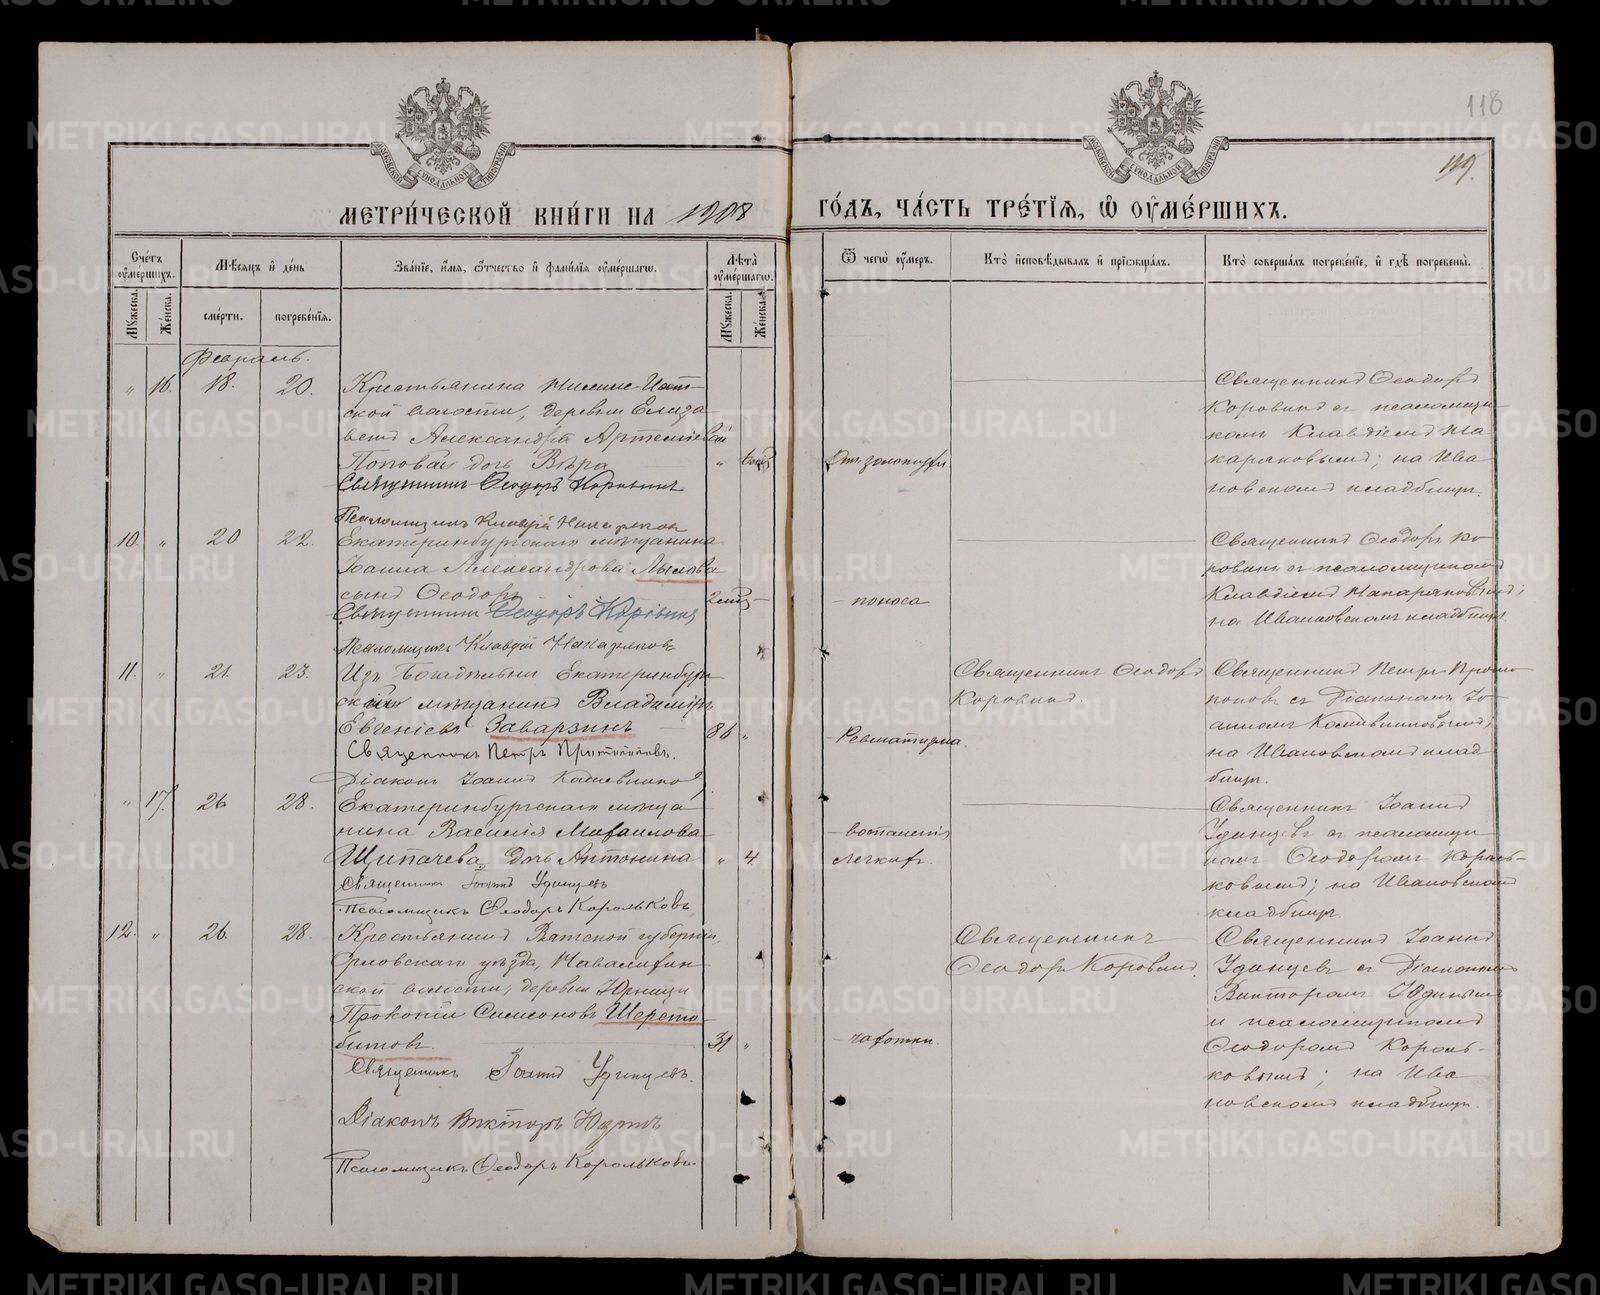 118
119.
МЕТРИ́ЧЕСКОЙ КНИ́ГИ НА 1908
ГО́ДЪ, ЧА́СТЬ ТРЕ́ТІѦ, Ѡ҆ ОУ҆МЕ́РШИХЪ.
Сче́тъ оу҆ме́ршихъ.
Мꙋ́жеска.
Же́нска.
Мѣ́сѧцъ и҆ де́нь
сме́рти.
погребе́нїѧ.
Зва́нїе, и҆́мѧ, ѻ҆́тчество и҆ фами́лїѧ оу҆ме́ршагѡ.
Лѣ́та оу҆ме́ршагѡ.
Мꙋ́жеска.
Же́нска.
Ѿ чегѡ̀ оу҆́меръ.
Кто̀ и҆сповѣ́дывалъ и҆ прїѡбща́лъ.
Кто̀ соверша́лъ погребе́нїе, и҆ гдѣ̀ погребены̀.
Февраль.
" 16. 18. 20.
Крестьянина Нижне-Исет-
ской волости, деревни Елиза-
ветъ Александра Артеміевой
Попова дочь Вѣра
Священникъ Ѳеодоръ Коровинъ
Псаломщикъ Клавдій Накаряковъ
Отъ золотухи.
Священникъ Ѳеодоръ
Коровинъ съ псаломщи-
комъ Клавдіемъ На
каряковымъ; на Ива
новскомъ кладбищѣ.
10. " 20 22.
Екатеринбургскаго мѣщанина
Іоанна Александрова Лылова
сынъ Ѳеодоръ
Священникъ Ѳеодоръ Коровинъ
Псаломщикъ Клавдій Накаряковъ
поноса.
Священникъ Ѳеодоръ Ко
ровинъ съ псаломщикомъ
Клавдіемъ Накаряковымъ;
на Ивановскомъ кладбищѣ.
11. " 21. 23.
Изъ Богадѣльни Екатеринбург-
скій мѣщанинъ Владиміръ
Евгеніевъ Заварзинъ
Священникъ Петръ
Діаконъ Іоаннъ
86 "
Ревматизма.
Священникъ Ѳеодоръ
Коровинъ.
Священникъ Петръ
съ Діакономъ Іо-
анномъ
на Ивановскомъ клад
бищѣ.
" 17. 26 28.
Екатеринбургскаго мѣща
нина Василія Михаилова
Щипачева, дочь Антонина
Священникъ Іоаннъ Удинцевъ
Псаломщикъ Ѳеодоръ Корольковъ
" 4
воспаленія
легкихъ.
Священникъ Іоаннъ
Удинцевъ съ псаломщи
комъ Ѳеодоромъ Король-
ковымъ; на Ивановскомъ
кладбищѣ.
12. " 26. 28.
Крестьянинъ Вятской губерніи,
Орловскаго уѣзда,
ской волости, деревни
Прокопій Симеоновъ Шерсто-
битовъ.
Священникъ Іоаннъ Удинцевъ.
Діаконъ Викторъ Юдинъ
Псаломщикъ Ѳеодоръ Корольковъ.
31 "
чахотки.
Священникъ
Ѳеодоръ Коровинъ.
Священникъ Іоаннъ
Удинцевъ съ Діакономъ
Викторомъ Юдинымъ
и псаломщикомъ
Ѳеодоромъ Король-
ковымъ; на Ива
новскомъ кладбищѣ.
METRIKI.GASO-URAL.RU